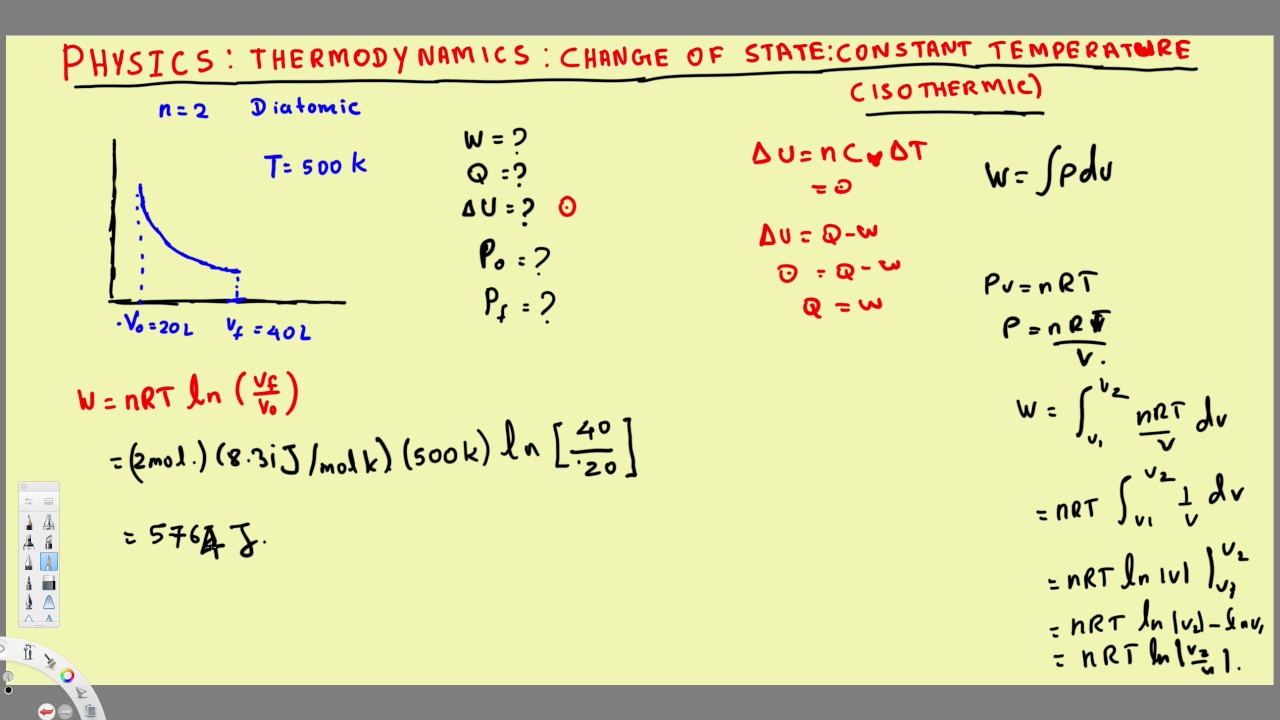 PHYSICS: THERMODYNAMICS: CHANGE OF STATE: CONSTANT TEMPERATURE
(ISOTHERMIC)
n=2 Diatomic
T=500k
V₀=20L
Vf=40L
W=?
Q=?
ΔU=? 0
P₀=?
Pf=?
ΔU=nCvΔT
=0
ΔU=Q-W
0=Q-W
Q=W
W=∫PdV
PV=nRT
P=nRT/V.
W=∫V₁^V₂ nRT/V dv
=nRT ∫V₁^V₂ 1/V dv
=nRT ln|V| |V₁^V₂
=nRT ln|V₂|-lnV₁
=nRT ln|V₂/V₁|.
W=nRT ln(Vf/V₀)
=(2mol.)(8.31J/molk)(500k) ln[40/20]
=5764 J.